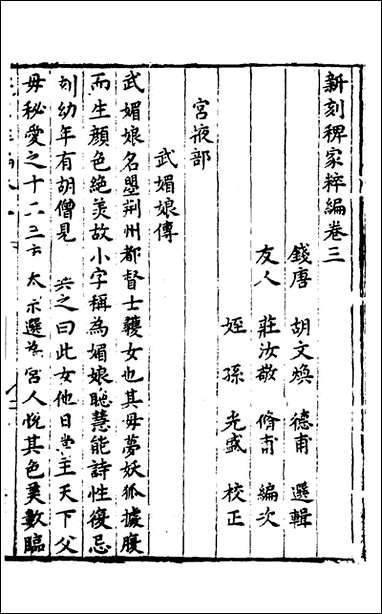 新刻稗家粹編卷三
錢唐 胡文煥 德甫 選輯
友人 莊汝敬 脩甫 編次
姪孫 光盛 校正
宮掖部
武媚娘傳
武媚娘名曌荆州都督士彠女也其母夢妖狐據腹
而生顔色絕羙故小字稱為媚娘聰慧能詩性復忌
刻幼年有胡僧見 之曰此女他日當主天下父
母秘愛之十 太 選為宮人悅其色美數臨